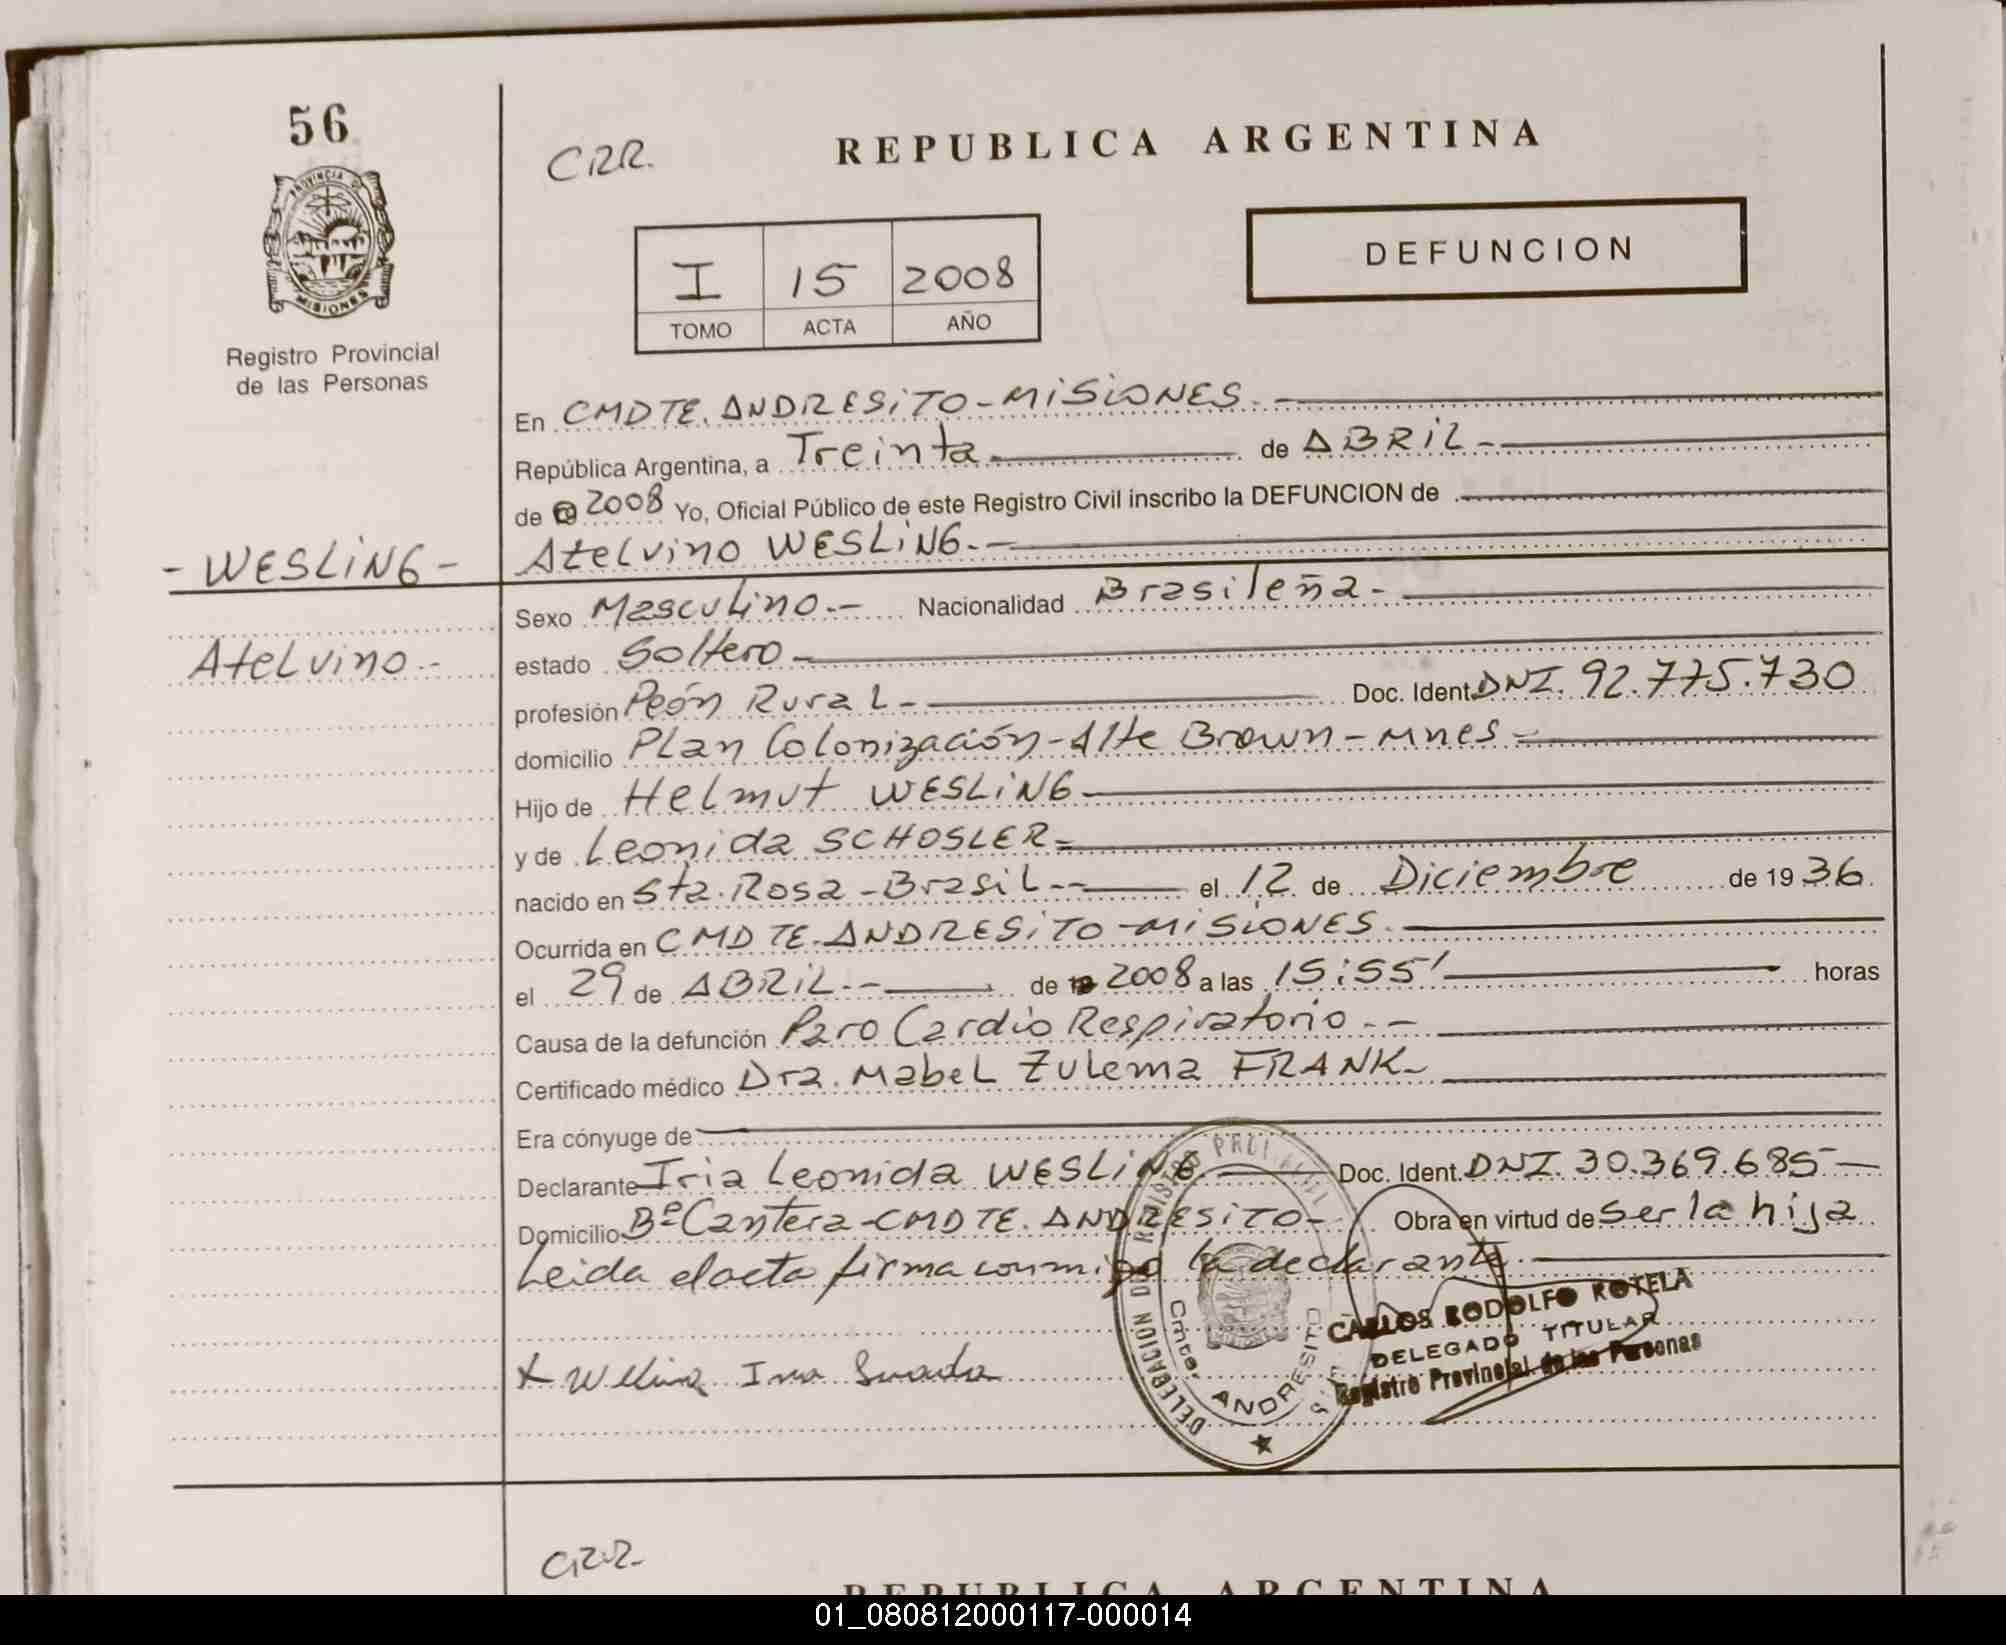 56
PROVINCIA DE
MISIONES
Registro Provincial
de las Personas
CRR.
REPUBLICA ARGENTINA
I 15 2008
TOMO ACTA AÑO
DEFUNCION
En CMDTE. ANDRESiTO-MiSiONES.-
República Argentina, a Treinta de ABRiL-
de 2008 Yo, Oficial Público de este Registro Civil inscribo la DEFUNCION de
- WESLiNG -
AteLvino WESLiNG.-
Sexo Masculino.- Nacionalidad Brasileña-
AteLvino.-
estado Soltero-
profesión Peón RuraL- Doc. Ident. DNI. 92.775.730
domicilio PLan Colonización-Alte Brown-Mnes-
Hijo de Helmut WESLiNG-
y de Leonida SCHOSLER=
nacido en Sta.Rosa-BrasiL-- el 12 de Diciembre de 1936.
Ocurrida en CMDTE.ANDRESiTO-MiSiONES.-
el 29 de ABRiL.- de 2008 a las 15:55' horas
Causa de la defunción Paro Cardio Respiratorio.-
Certificado médico Dra. MabeL Zulema FRANK-
Era cónyuge de
Declarante Iria Leonida WESLiNG. Doc. Ident. DNI. 30.369.685-
Domicilio Bº Cantera-CMDTE. ANDRESiTO- Obra en virtud de Ser la hija
Leida el acta firma conmigo la declarante.-
CARLOS RODOLFO ROTELA
DELEGADO TITULAR
Registro Provincial de las Personas
DELEGACION DEL REGISTRO
Cmte. ANDRESITO
REPUBLICA ARGENTINA
01_080812000117-000014